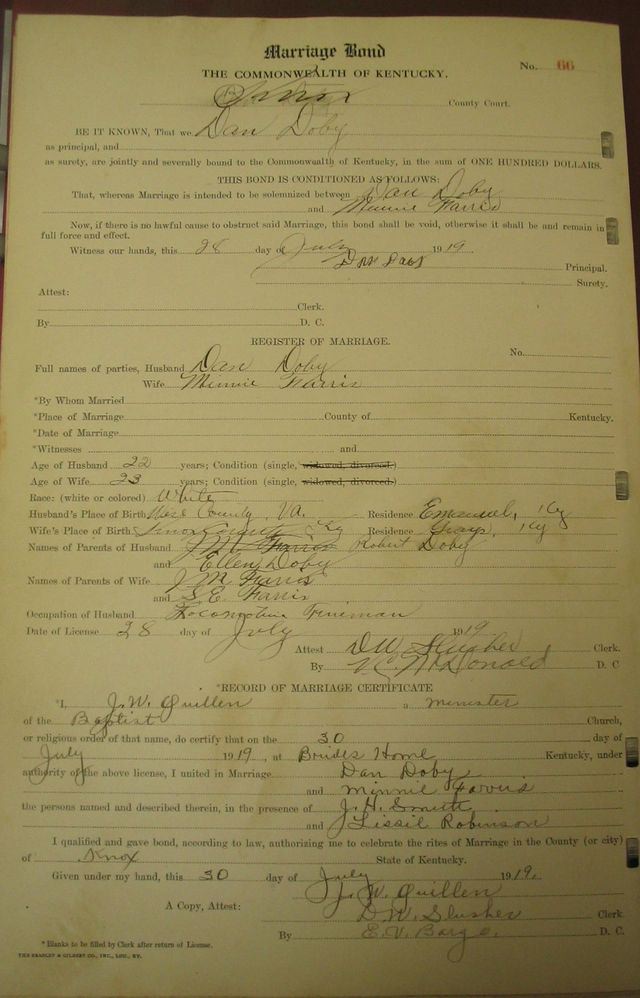 Marriage Bond
No. 66
THE COMMONWEALTH OF KENTUCKY.
County Court.
BE IT KNOWN, That we Dan Doby
as principal, and
as surety, are jointly and severally bound to the Commonwealth of Kentucky, in the sum of ONE HUNDRED DOLLARS.
THIS BOND IS CONDITIONED AS FOLLOWS:
That, whereas Marriage is intended to be solemnized between Dan Doby
and Minnie Farris
Now, if there is no lawful cause to obstruct said Marriage, this bond shall be void, otherwise it shall be and remain in
full force and effect.
Witness our hands, this 28 day of July 1919
Principal.
Surety.
Attest:
Clerk.
By D. C.
REGISTER OF MARRIAGE.
No.
Full names of parties, Husband Dan Doby
Wife Minnie Farris
*By Whom Married
*Place of Marriage County of Kentucky.
*Date of Marriage
*Witnesses and
Age of Husband 22 years; Condition (single, widowed, divorced.)
Age of Wife 23 years; Condition (single, widowed, divorced.)
Race: (white or colored) White
Husband's Place of Birth County, Va. Residence Emanuel, Ky
Wife's Place of Birth Knox County Ky Residence Grays, Ky
Names of Parents of Husband J M Farris Robert Doby
and Ellen Doby
Names of Parents of Wife J M Farris
and S. E. Farris
Occupation of Husband Locomotive Fireman
Date of License 28 day of July 1919
Attest D W Slusher Clerk.
By V. C. McDonald D. C
*RECORD OF MARRIAGE CERTIFICATE
*I, J. W. Quillen a minister
of the Baptist Church,
or religious order of that name, do certify that on the 30 day of
July 1919, at Brides Home Kentucky, under
authority of the above license, I united in Marriage Dan Doby
and Minnie Farris
the persons named and described therein, in the presence of J. H. Smith
and Lissie Robinson
I qualified and gave bond, according to law, authorizing me to celebrate the rites of Marriage in the County (or city)
of Knox State of Kentucky.
Given under my hand, this 30 day of July 1919.
J. W. Quillen
A Copy, Attest: D. W. Slusher Clerk
By E. V. Bargo. D. C.
* Blanks to be filled by Clerk after return of License.
THE BRADLEY & GILBERT CO., INC., LOU., KY.